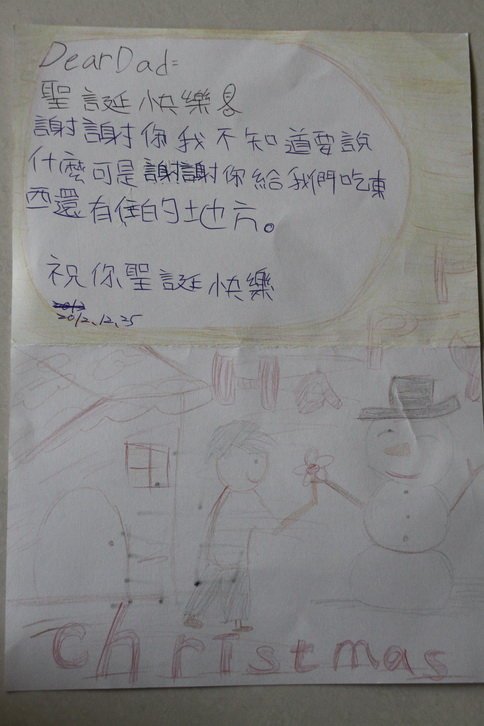 Dear Dad:
聖誕快樂
謝謝你我不知道要說
什麼可是謝謝你給我們吃東
西還有住的地方。
祝你聖誕快樂
2012.12.25
christmas